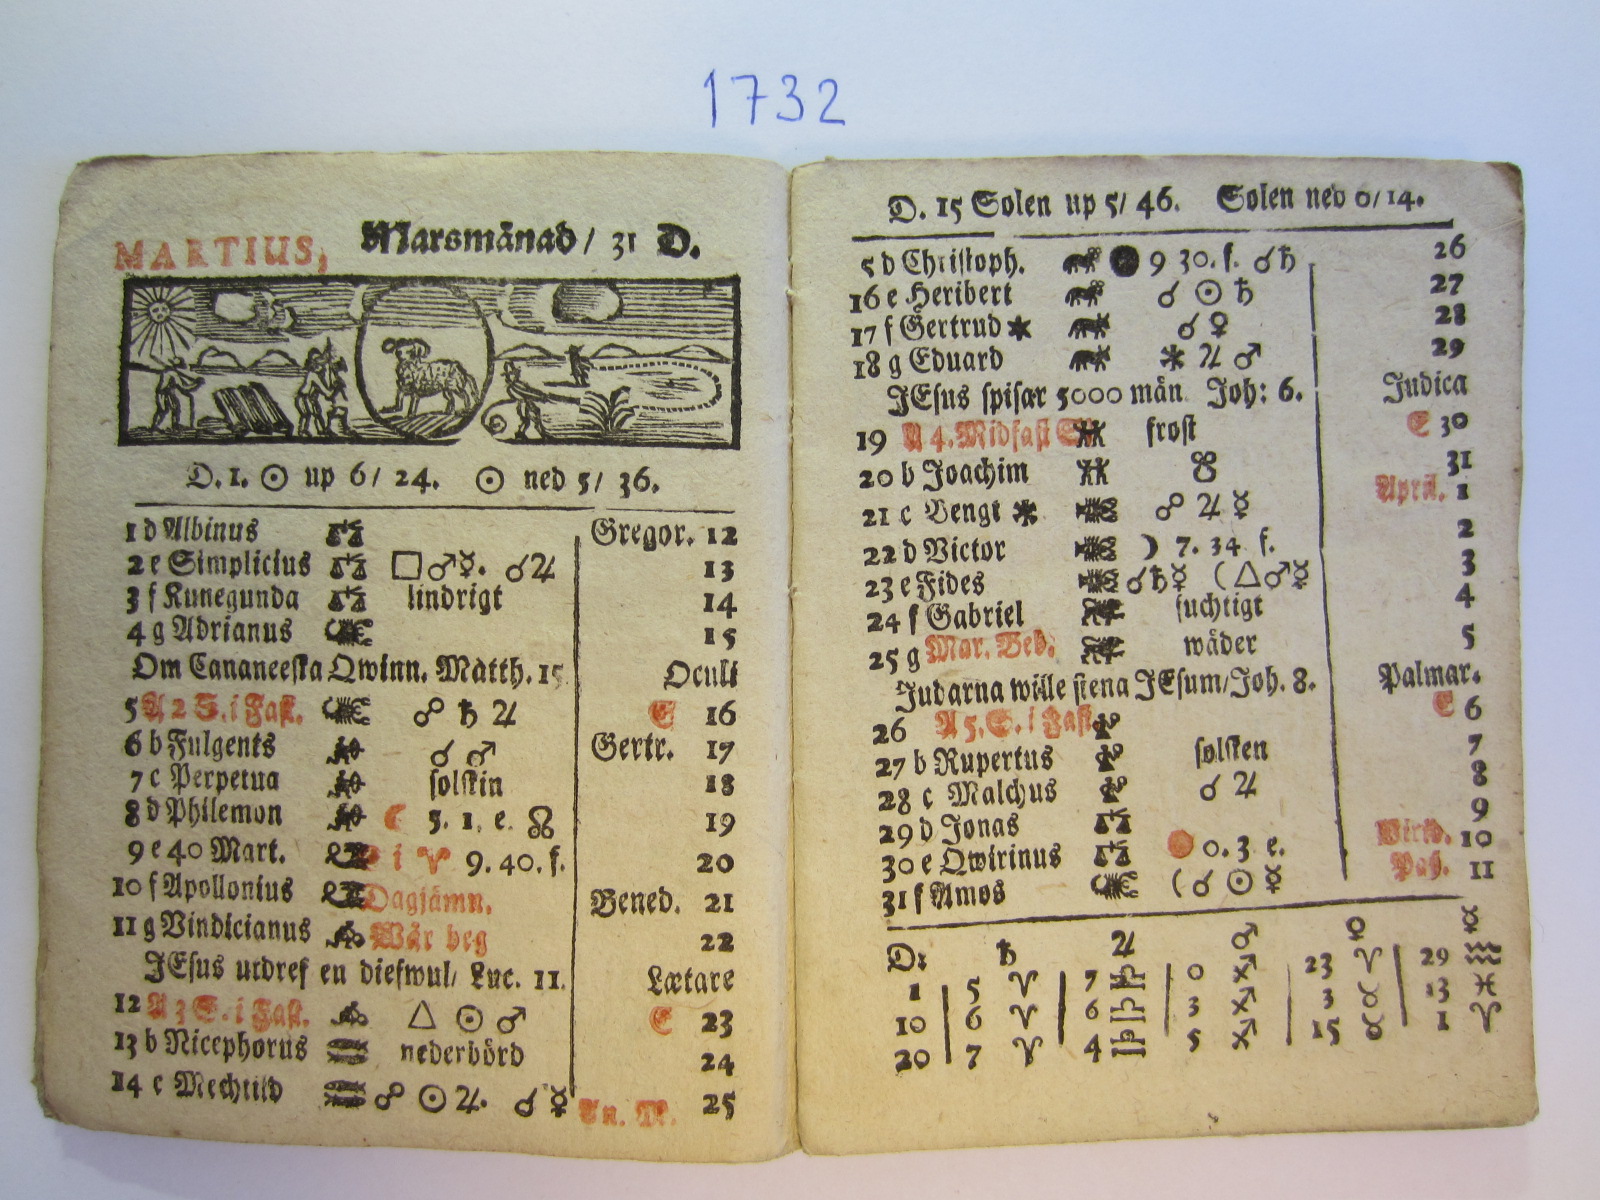 1732
MARTIUS, Marsmånad/ 31 D.
D. 1. ☉ up 6/ 24. ☉ ned 5/ 36.
1 d Albinus Gregor. 12
2 e Simplicius □ ♂ ☿. ☌ ♃ 13
3 f Kunegunda lindrigt 14
4 g Adrianus 15
Om Cananeeska Qwinn. Matth. 15 Oculi
5 A 2 S. i Fast. ☍ ♄ ♃ E 16
6 b Fulgents ☌ ♂ Gertr. 17
7 c Perpetua solskin 18
8 d Philemon ☾ 5. 1. e. ☊ 19
9 e 40 Mart. i ♈ 9. 40. f. 20
10 f Apollonius Dagjämn. Bened. 21
11 g Vindicianus Wår beg 22
JEsus utdref en diefwul/ Luc. 11. Lætare
12 A 3 S. i Fast. △ ☉ ♂ E 23
13 b Nicephorus nederbörd 24
14 c Mechtild ☍ ☉ ♃. ☌ ☿ An. M. 25
D. 15 Solen up 5/ 46. Solen ned 6/ 14.
5 d Christoph. ● 9 30. f. ☌ ♄ 26
16 e Heribert ☌ ☉ ♄ 27
17 f Gertrud * ☌ ♀ 28
18 g Eduard ⚹ ♃ ♂ 29
JEsus spisar 5000 män. Joh: 6. Judica
19 A 4. Midfast S frost E 30
20 b Joachim ☋ 31
21 c Bengt * ☍ ♃ ☿ April. 1
22 d Victor ☽ 7. 34 f. 2
23 e Fides ☌ ♄ ☿ ( △ ♂ ☿ 3
24 f Gabriel fuchtigt 4
25 g Mar. Beb. wäder 5
Judarna wille stena JEsum/ Joh. 8. Palmar.
26 A 5. S. i Fast E 6
27 b Rupertus solsken 7
28 c Malchus ☌ ♃ 8
29 d Jonas 9
30 e Qwirinus 0. 3 e. 10
31 f Amos ( ☌ ☉ ☿ 11
D: ♄ ♃ ♂ ♀ ☿
1 5 ♈ 7 ♎ 0 ♐ 23 ♈ 29 ♒
10 6 ♈ 6 ♎ 3 ♐ 3 ♉ 13 ♓
20 7 ♈ 4 ♎ 5 ♐ 15 ♉ 1 ♈